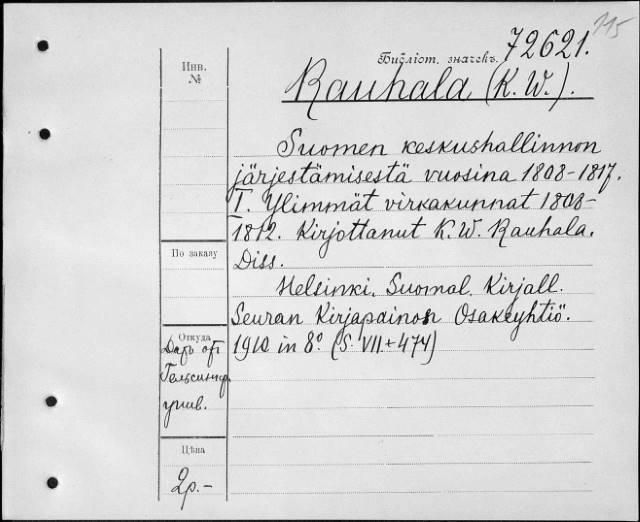 115
Библіот. значекъ. 72621.
Инв.
№
Rauhala (K. W.).
Suomen keskushallinnon
järjestämisestä vuosina 1808-1817.
I. Ylimmät virkakunnat 1808-
1812. Kirjottanut K. W. Rauhala.
Diss.
По заказу
Helsinki. Suomal. Kirjall.
Seuran Kirjapainon Osakeyhtiö.
1910 in 8° (S. VII + 474)
Откуда
Даръ от
Гельсингф.
унив.
Цѣна
2р.-